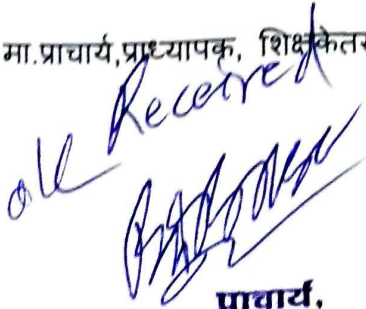 मा.प्राचार्य,प्राध्यापक, शिक्षकेतर
ok Received
प्राचार्य,